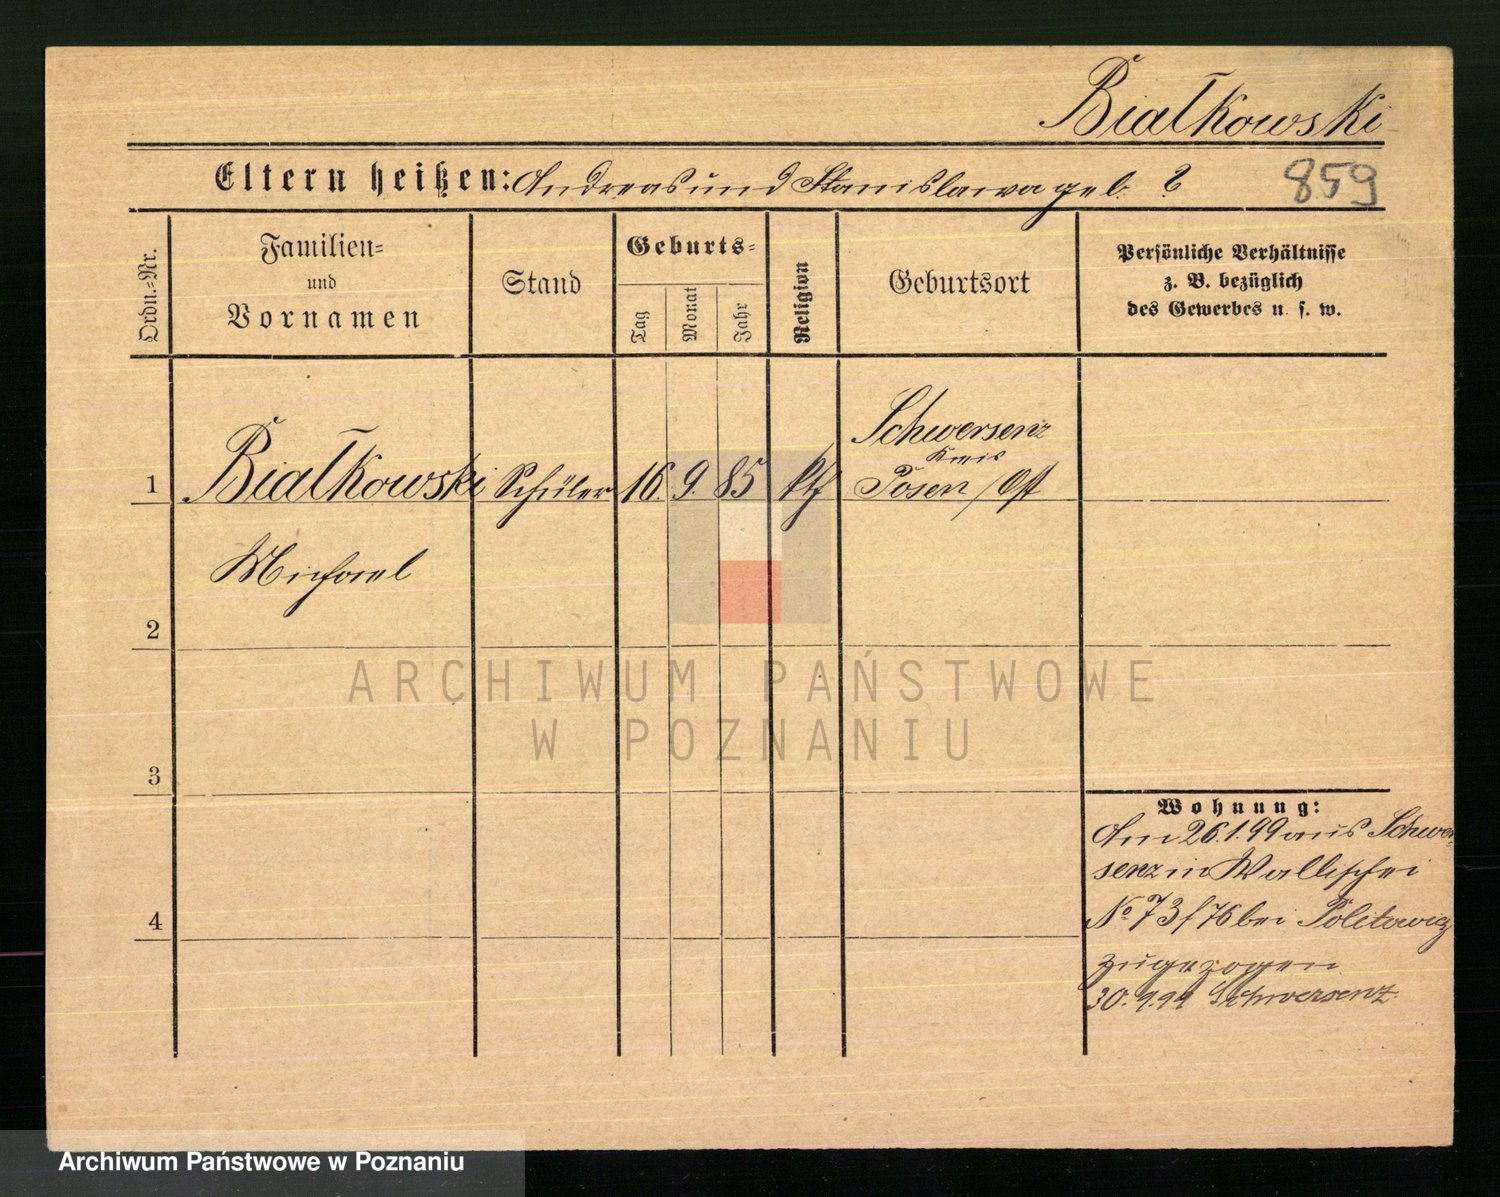 Białkowski
Eltern heißen: Andreas und Stanislawa geb. ?
859
Ordn.=Nr.
Familien=
und
Vornamen
Stand
Geburts=
Tag
Monat
Jahr
Religion
Geburtsort
Persönliche Verhältnisse
z. B. bezüglich
des Gewerbes u. s. w.
1
Białkowski
Schüler
16.
9.
85
kth
Schwersenz
Kreis
Posen / Ost
Michael
2
3
4
Wohnung:
Am 26.1.99 aus Schwer-
senz in Wallischei
No 73/76 bei Politowicz
zugezogen
30.9.99 Schwersenz.
ARCHIWUM PAŃSTWOWE
W POZNANIU
Archiwum Państwowe w Poznaniu